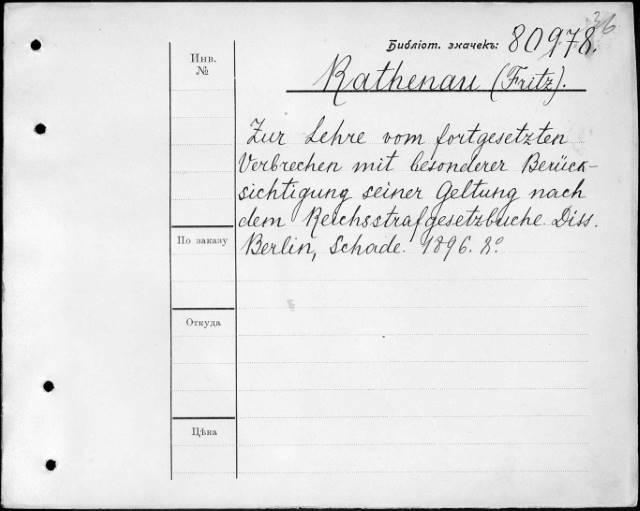 36
Библіот. значекъ: 80978.
Инв.
№
Rathenau (Fritz).
Zur Lehre vom fortgesetzten
Verbrechen mit besonderer Berück-
sichtigung seiner Geltung nach
dem Reichsstrafgesetzbuche. Diss.
Berlin, Schade. 1896. 8°
По заказу
Откуда
Цѣна